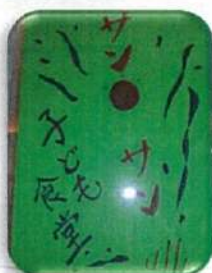 サン
サン
子ども
食堂